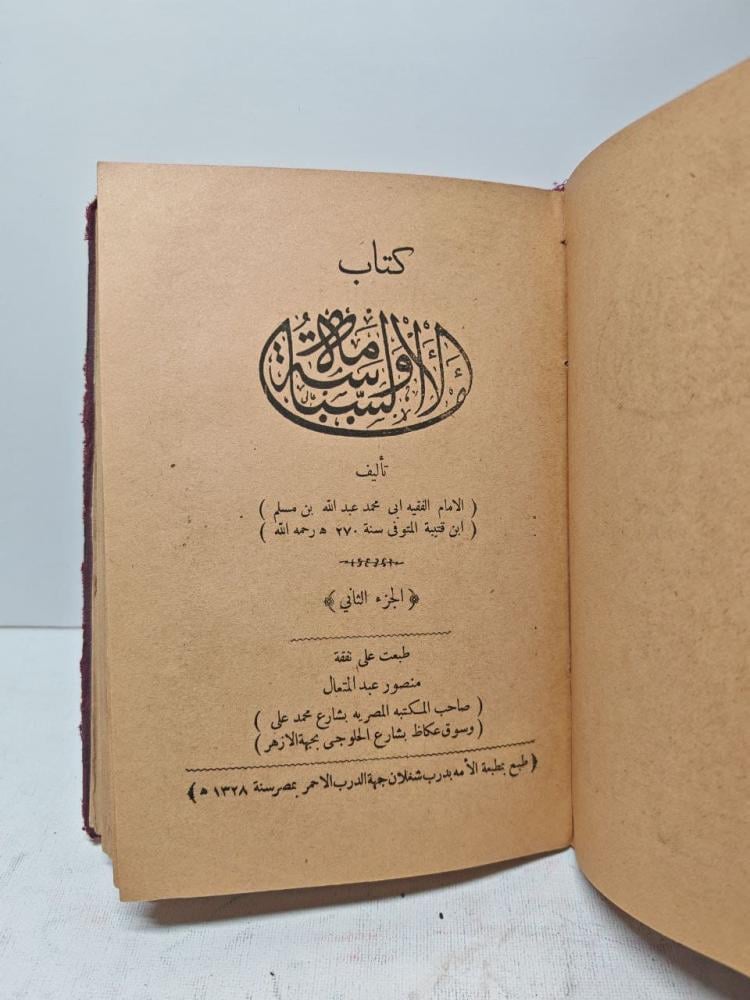 كتاب
الأمامة والسياسة
تأليف
( الامام الفقيه ابى محمد عبد الله بن مسلم )
( ابن قتيبة المتوفى سنة ٢٧٠ ه رحمه الله )
﴿ الجزء الثاني ﴾
طبعت على نفقة
منصور عبد المتعال
( صاحب المكتبه المصريه بشارع محمد على )
( وسوق عكاظ بشارع الحلوجى بجهة الازهر )
﴿ طبع بمطبعة الأمه بدرب شغلان جهة الدرب الاحمر بمصر سنة ١٣٢٨ ه ﴾